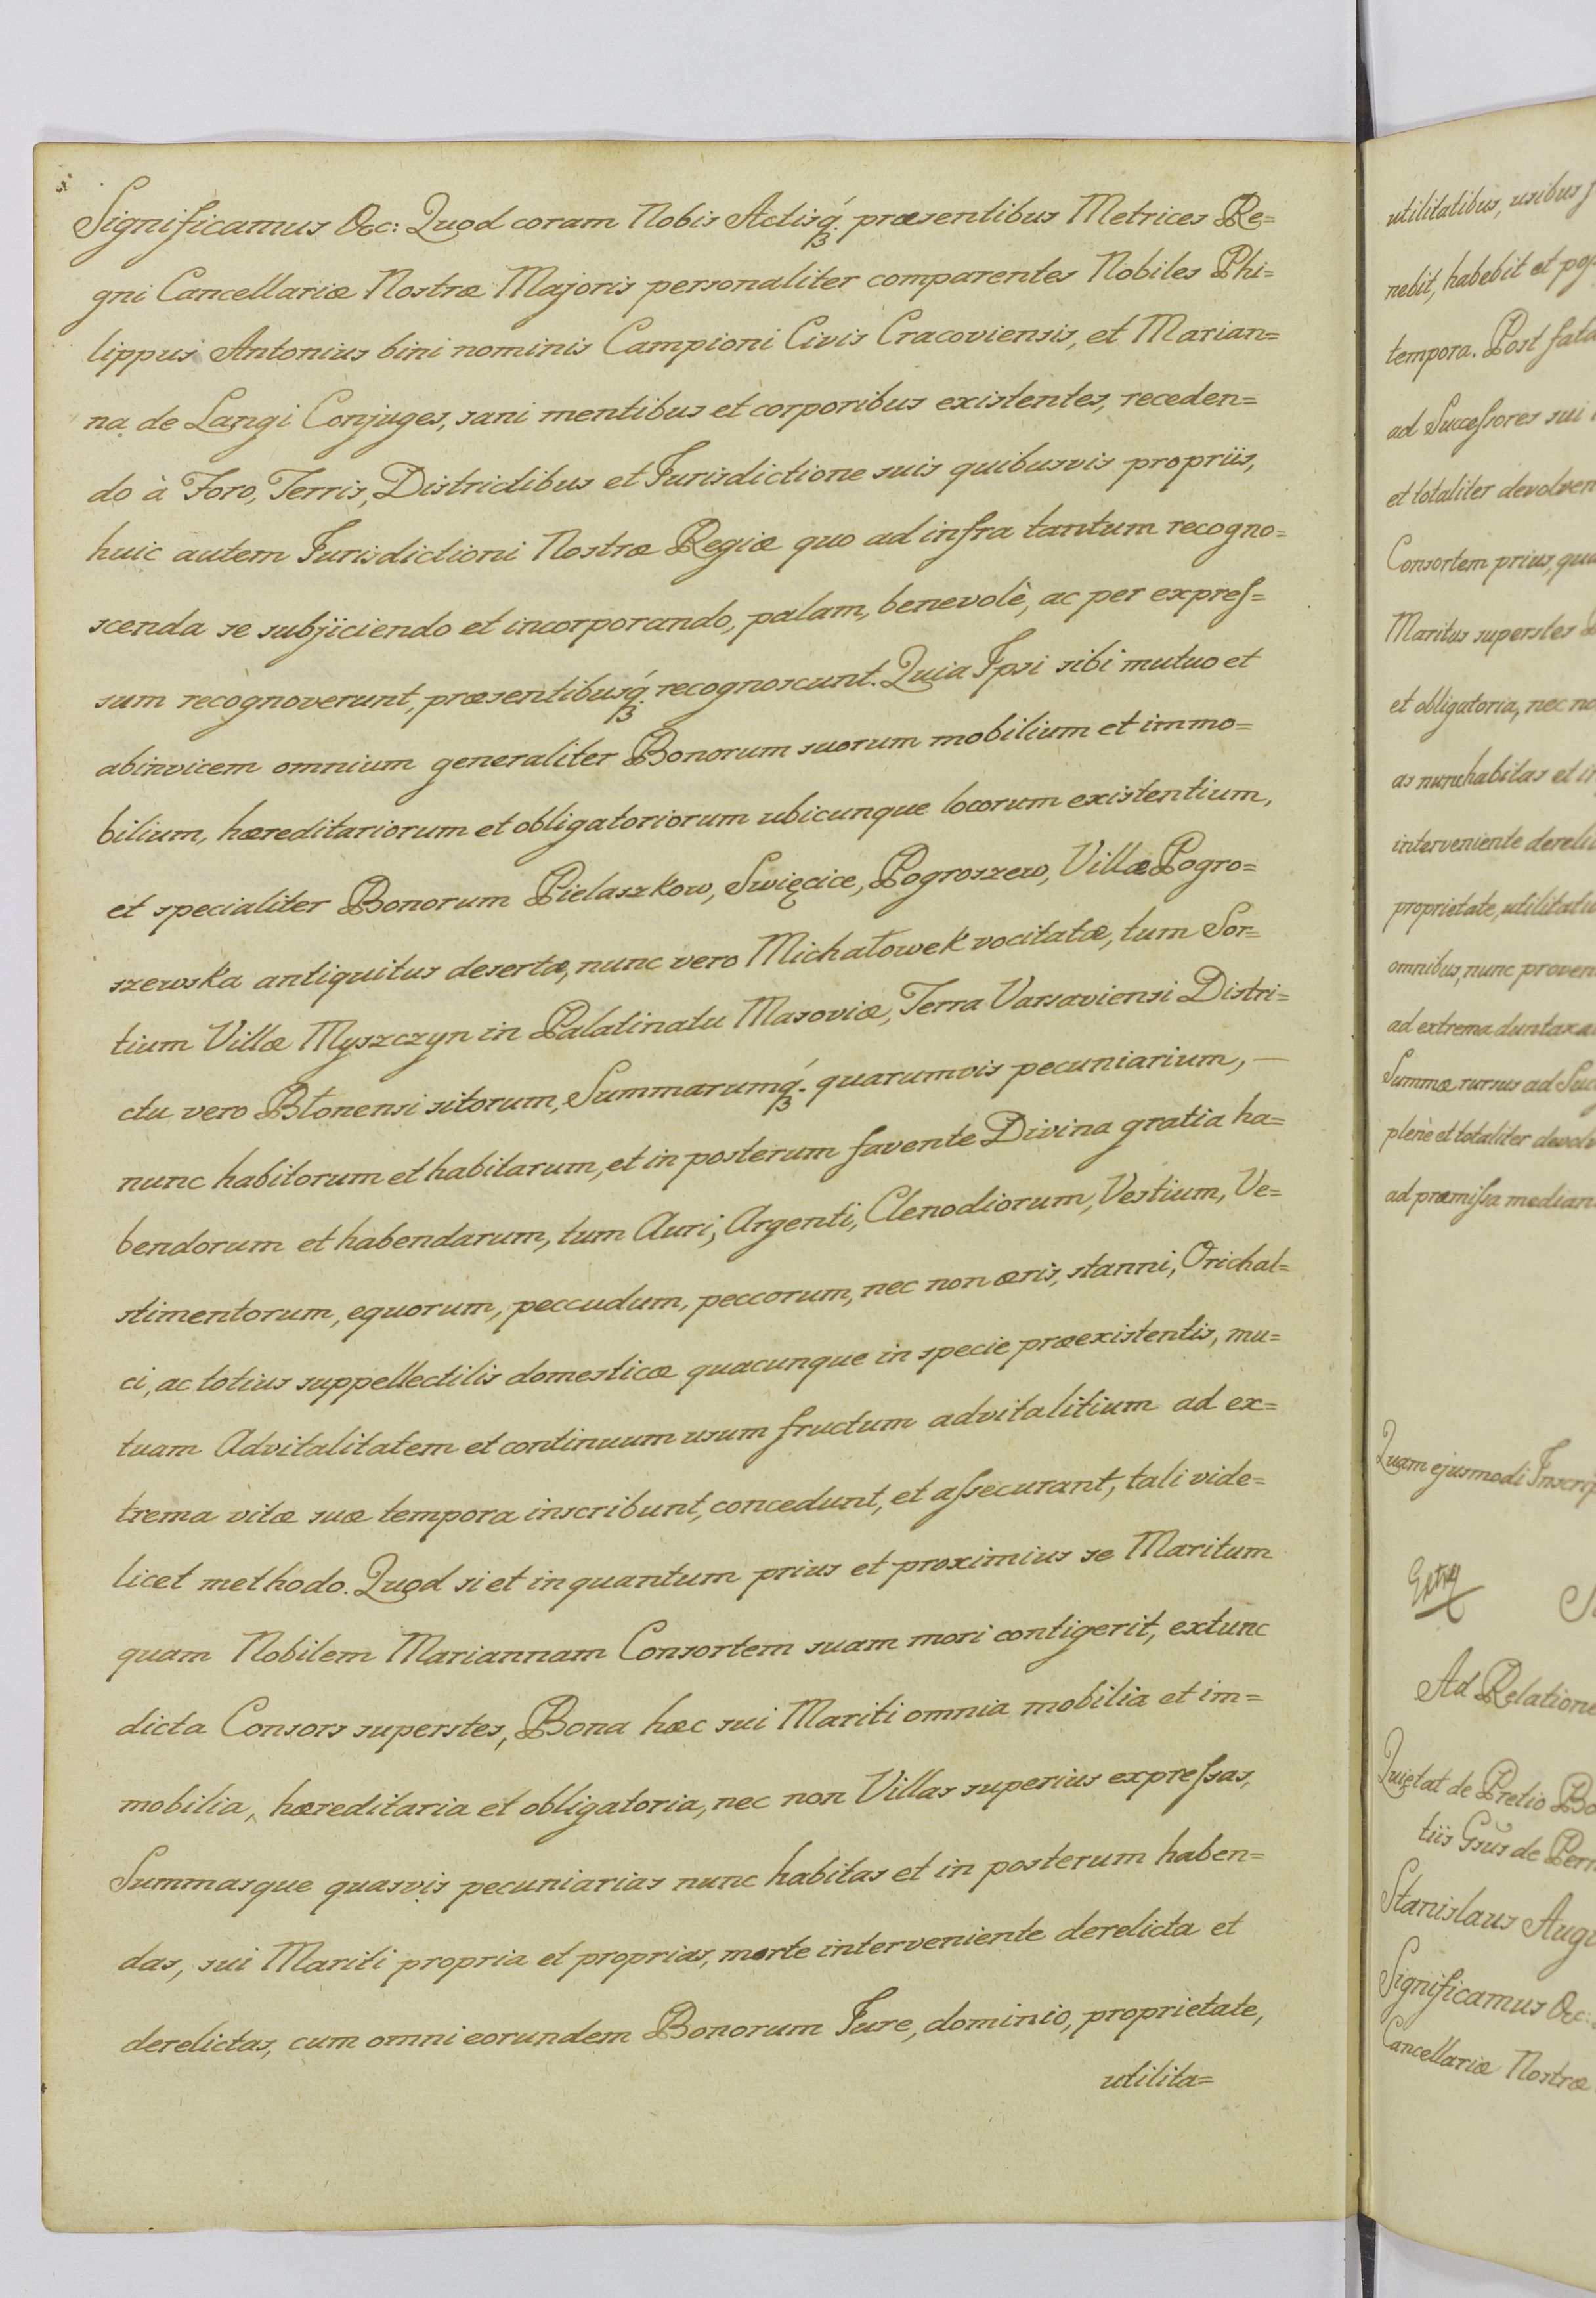 Significamus &c: Quod coram Nobis Actisq́ꝫ præsentibus Metrices Re=
gni Cancellariæ Nostræ Majoris personaliter comparentes Nobiles Phi=
lippus Antonius bini nominis Campioni Civis Cracoviensis, et Marian=
na de Langi Conjuges, sani mentibus et corporibus existentes, receden=
do à Foro, Terris, Districtibus et Jurisdictione suis quibusvis propriis,
huic autem Jurisdictioni Nostræ Regiæ quo ad infra tantum recogno=
scenda se subjiciendo et incorporando, palam, benevolè, ac per expreſ=
sum recognoverunt, præsentibusq́ꝫ recognoscunt. Quia Ipsi sibi mutuo et
abinvicem omnium generaliter Bonorum suorum mobilium et immo=
bilium, hæreditariorum et obligatoriorum ubicunque locorum existentium,
et specialiter Bonorum Pielaszkow, Swięcice, Pogroszew, Villæ Pogro=
szewska antiquitus desertæ, nunc vero Michałowek vocitatæ, tum Sor=
tium Villæ Myszczyn in Palatinatu Masoviæ, Terra Varsaviensi Distri=
ctu vero Błonensi sitorum, Summarumq́ꝫ. quarumvis pecuniarium, —
nunc habitorum et habitarum, et in posterum favente Divina gratia ha=
bendorum et habendarum, tum Auri, Argenti, Clenodiorum, Vestium, Ve=
stimentorum, equorum, peccudum, peccorum, nec non æris, stanni, Orichal=
ci, ac totius suppellectilis domesticæ quacunque in specie præexistentis, mu=
tuam Advitalitatem et continuum usum fructum advitalitium ad ex=
trema vitæ suæ tempora inscribunt, concedunt, et aſsecurant, tali vide=
licet methodo. Quod si et in quantum prius et proximius se Maritum
quam Nobilem Mariannam Consortem suam mori contigerit, extunc
dicta Consors superstes, Bona hæc sui Mariti omnia mobilia et im=
mobilia, hæreditaria et obligatoria, nec non Villas superius expreſsas,
Summasque quasvis pecuniarias nunc habitas et in posterum haben=
das, sui Mariti propria et proprias, morte interveniente derelicta et
derelictas, cum omni eorundem Bonorum Jure, dominio, proprietate,
utilita=
utilitatibus, usibus
nebit, habebit et
tempora. Post
ad Succeſsores sui
et totaliter
Consortem prius,
Maritus superstes
et obligatoria, nec
as nunc habitas et
interveniente
proprietate,
omnibus, nunc
ad extrema
Summæ rursus ad
plenè et totaliter
ad præmiſsa
Quam ejusmodi
Ad
Quietat de Pretio
tiis Gsus de
Stanislaus
Significamus &c:
Cancellariæ Nostræ